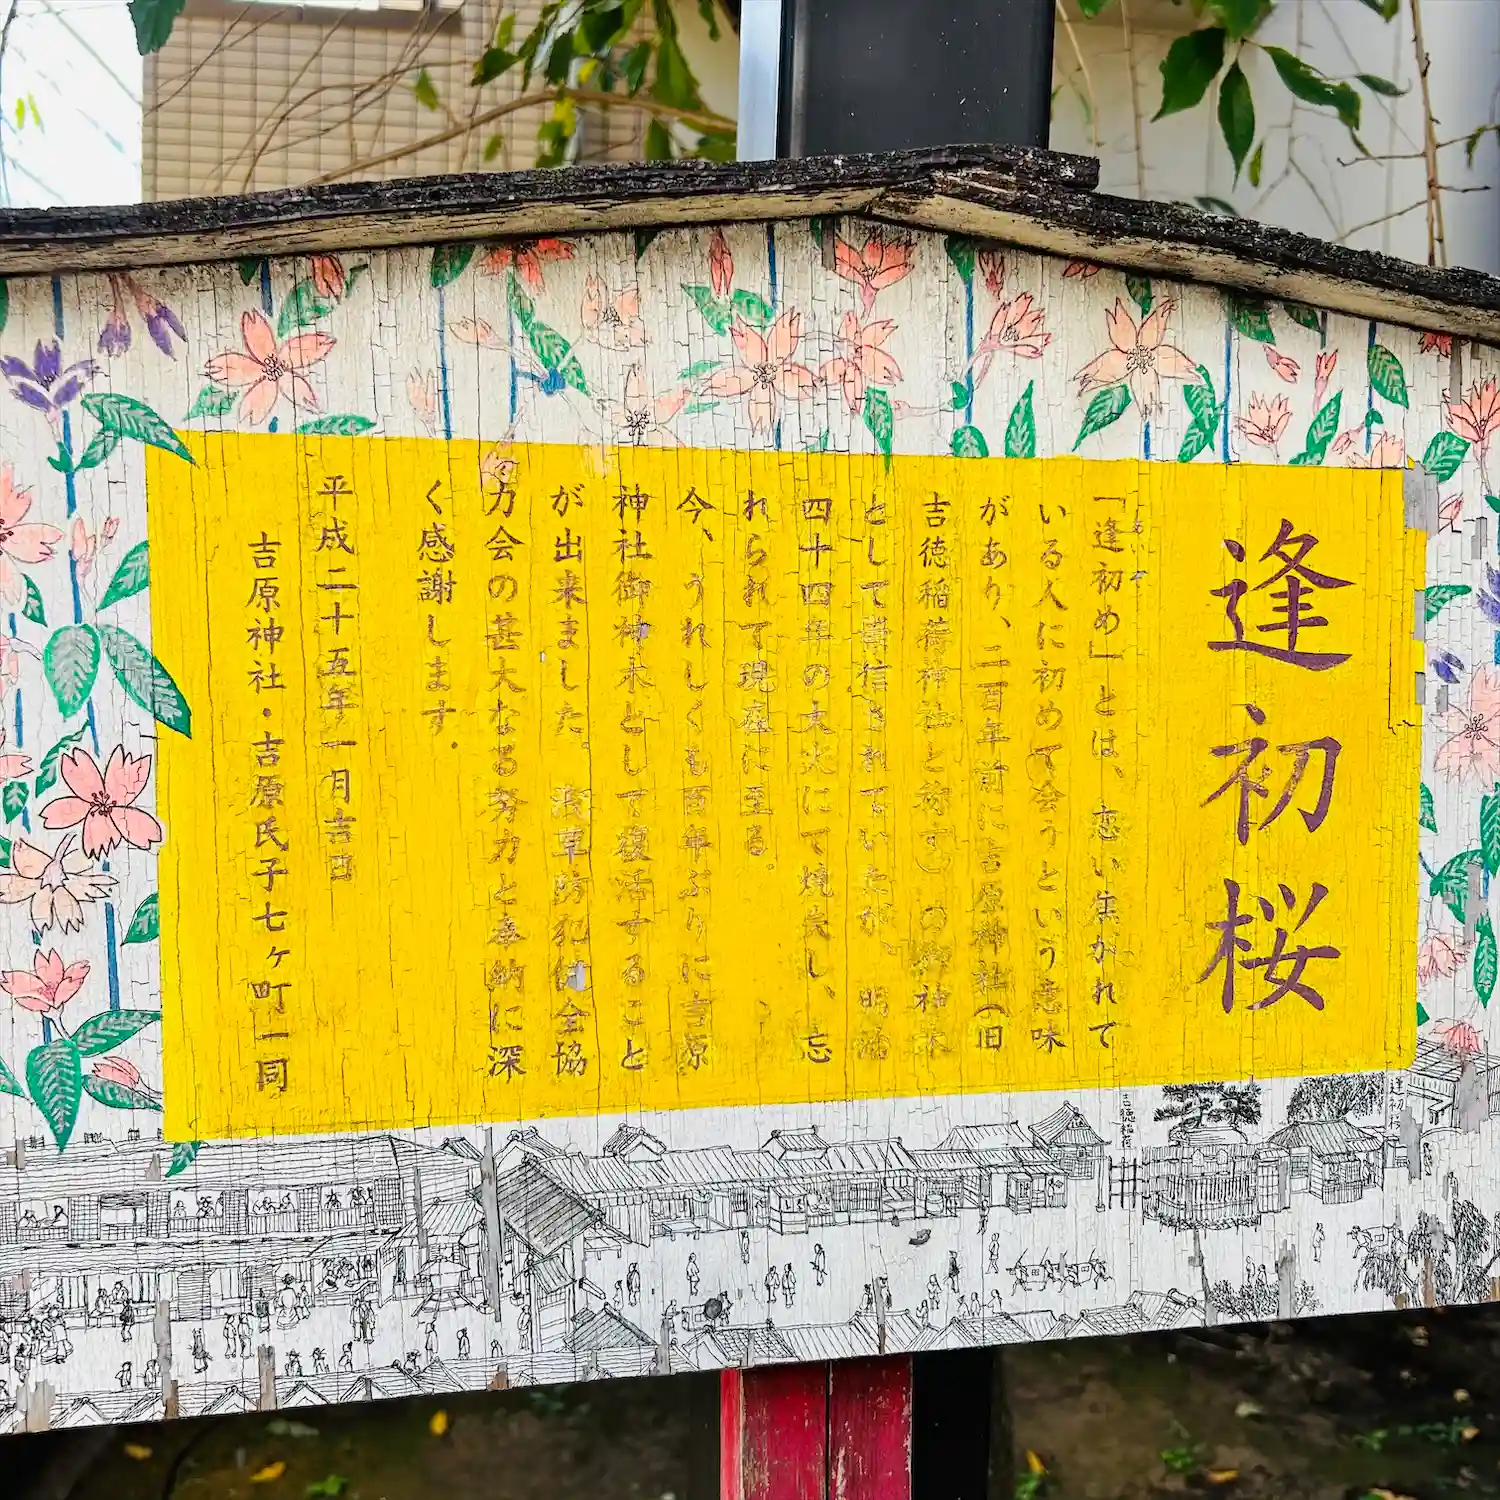 逢初桜
「逢初め」とは、恋い焦がれて
あいぞ
いる人に初めて会うという意味
があり、二百年前に吉原神社(旧
吉徳稲荷神社と称す)の御神木
として崇信されていたが、明治
四十四年の大火にて焼失し、忘
れられて現在に至る。
今、うれしくも百年ぶりに吉原
神社御神木として復活すること
が出来ました。浅草防犯健全協
力会の甚大なる努力と奉納に深
く感謝します。
平成二十五年一月吉日
吉原神社・吉原氏子七ヶ町一同
吉徳稲荷
逢初桜